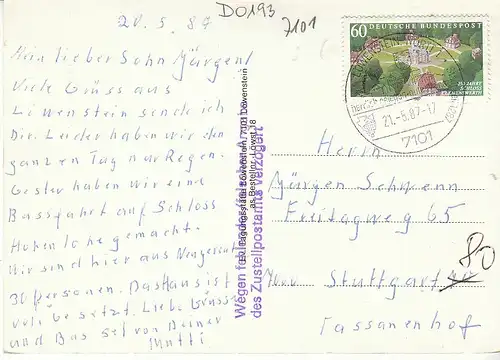 20.5.87
D0193
7101
Mein lieber Sohn Jürgen!
Viele Grüss aus
Löwenstein sende ich
Dir. Leider haben wir den
ganzen Tag nur Regen.
Gester haben wir eine
Bassfahrt auf Schloss
Hohenlohe gemacht.
Wir sind hier aus
30 Personen. Das Haus ist
voll besetzt. Lieb. Grüsse
und Bas sel von Deiner
Mutti
7101 Löwenstein
Wegen
des Zustellpostamts verzögert
60
DEUTSCHE BUNDESPOST
250 JAHRE
SCHLOSS
CLEMENSWERTH
21.-5.87-17
7101
Herrn
Jürgen Schwenn
Freitagweg 65
7000 Stuttgart
80
Tassanenhof